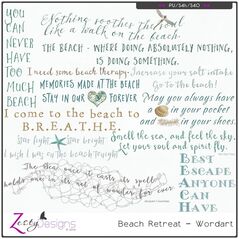 PU/S4H/S4O
YOU
CAN
NEVER
HAVE
TOO
MUCH
BEACH
Nothing soothes the soul
like a walk on the beach
THE BEACH - WHERE DOING ABSOLUTELY NOTHING,
IS DOING SOMETHING.
I need some beach therapy.
Increase your salt intake
Go to the beach!
MEMORIES MADE AT THE BEACH
STAY IN OUR FOREVER
May you always have
a shell in your pocket
and sand in your shoes.
I come to the beach to
B.R.E.A.T.H.E.
Smell the sea, and feel the sky.
Let your soul and spirit fly.
Star light star bright
I wish I was on the beach tonight
BEST
ESCAPE
ANYONE
CAN
HAVE
The sea, once it casts its spell,
holds one in its net of wonder for ever
Zesty Designs
Beach Retreat - Wordart